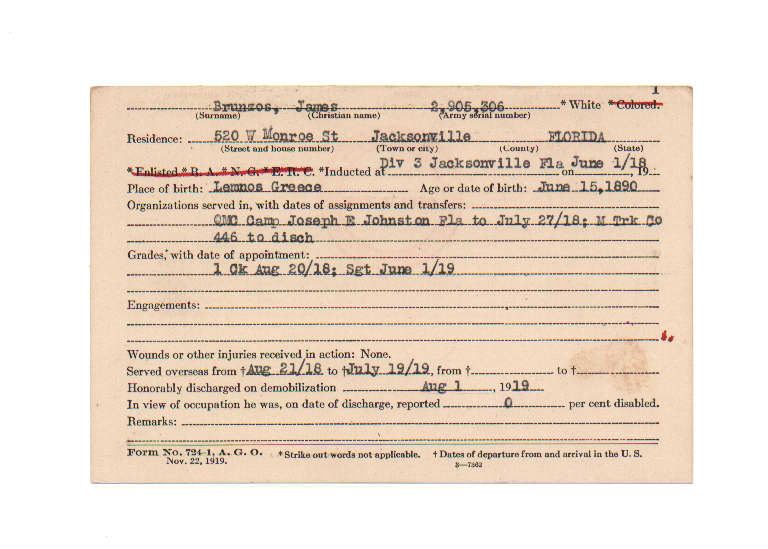 1
Brunzos, James 2,905,306 * White * Colored.
(Surname) (Christian name) (Army serial number)
Residence: 520 W Monroe St Jacksonville FLORIDA
(Street and house number) (Town or city) (County) (State)
* Enlisted * R. A. * N. G. * E. R. C. *Inducted at Div 3 Jacksonville Fla on June 1/18, 19
Place of birth: Lemnos Greece Age or date of birth: June 15,1890
Organizations served in, with dates of assignments and transfers:
QMC Camp Joseph E Johnston Fla to July 27/18; M Trk Co
446 to disch
Grades, with date of appointment:
1 Ck Aug 20/18; Sgt June 1/19
Engagements:
Wounds or other injuries received in action: None.
Served overseas from † Aug 21/18 to † July 19/19, from † to †
Honorably discharged on demobilization Aug 1, 1919
In view of occupation he was, on date of discharge, reported 0 per cent disabled.
Remarks:
Form No. 724-1, A. G. O. * Strike out words not applicable. † Dates of departure from and arrival in the U. S.
Nov. 22, 1919. 3—7362